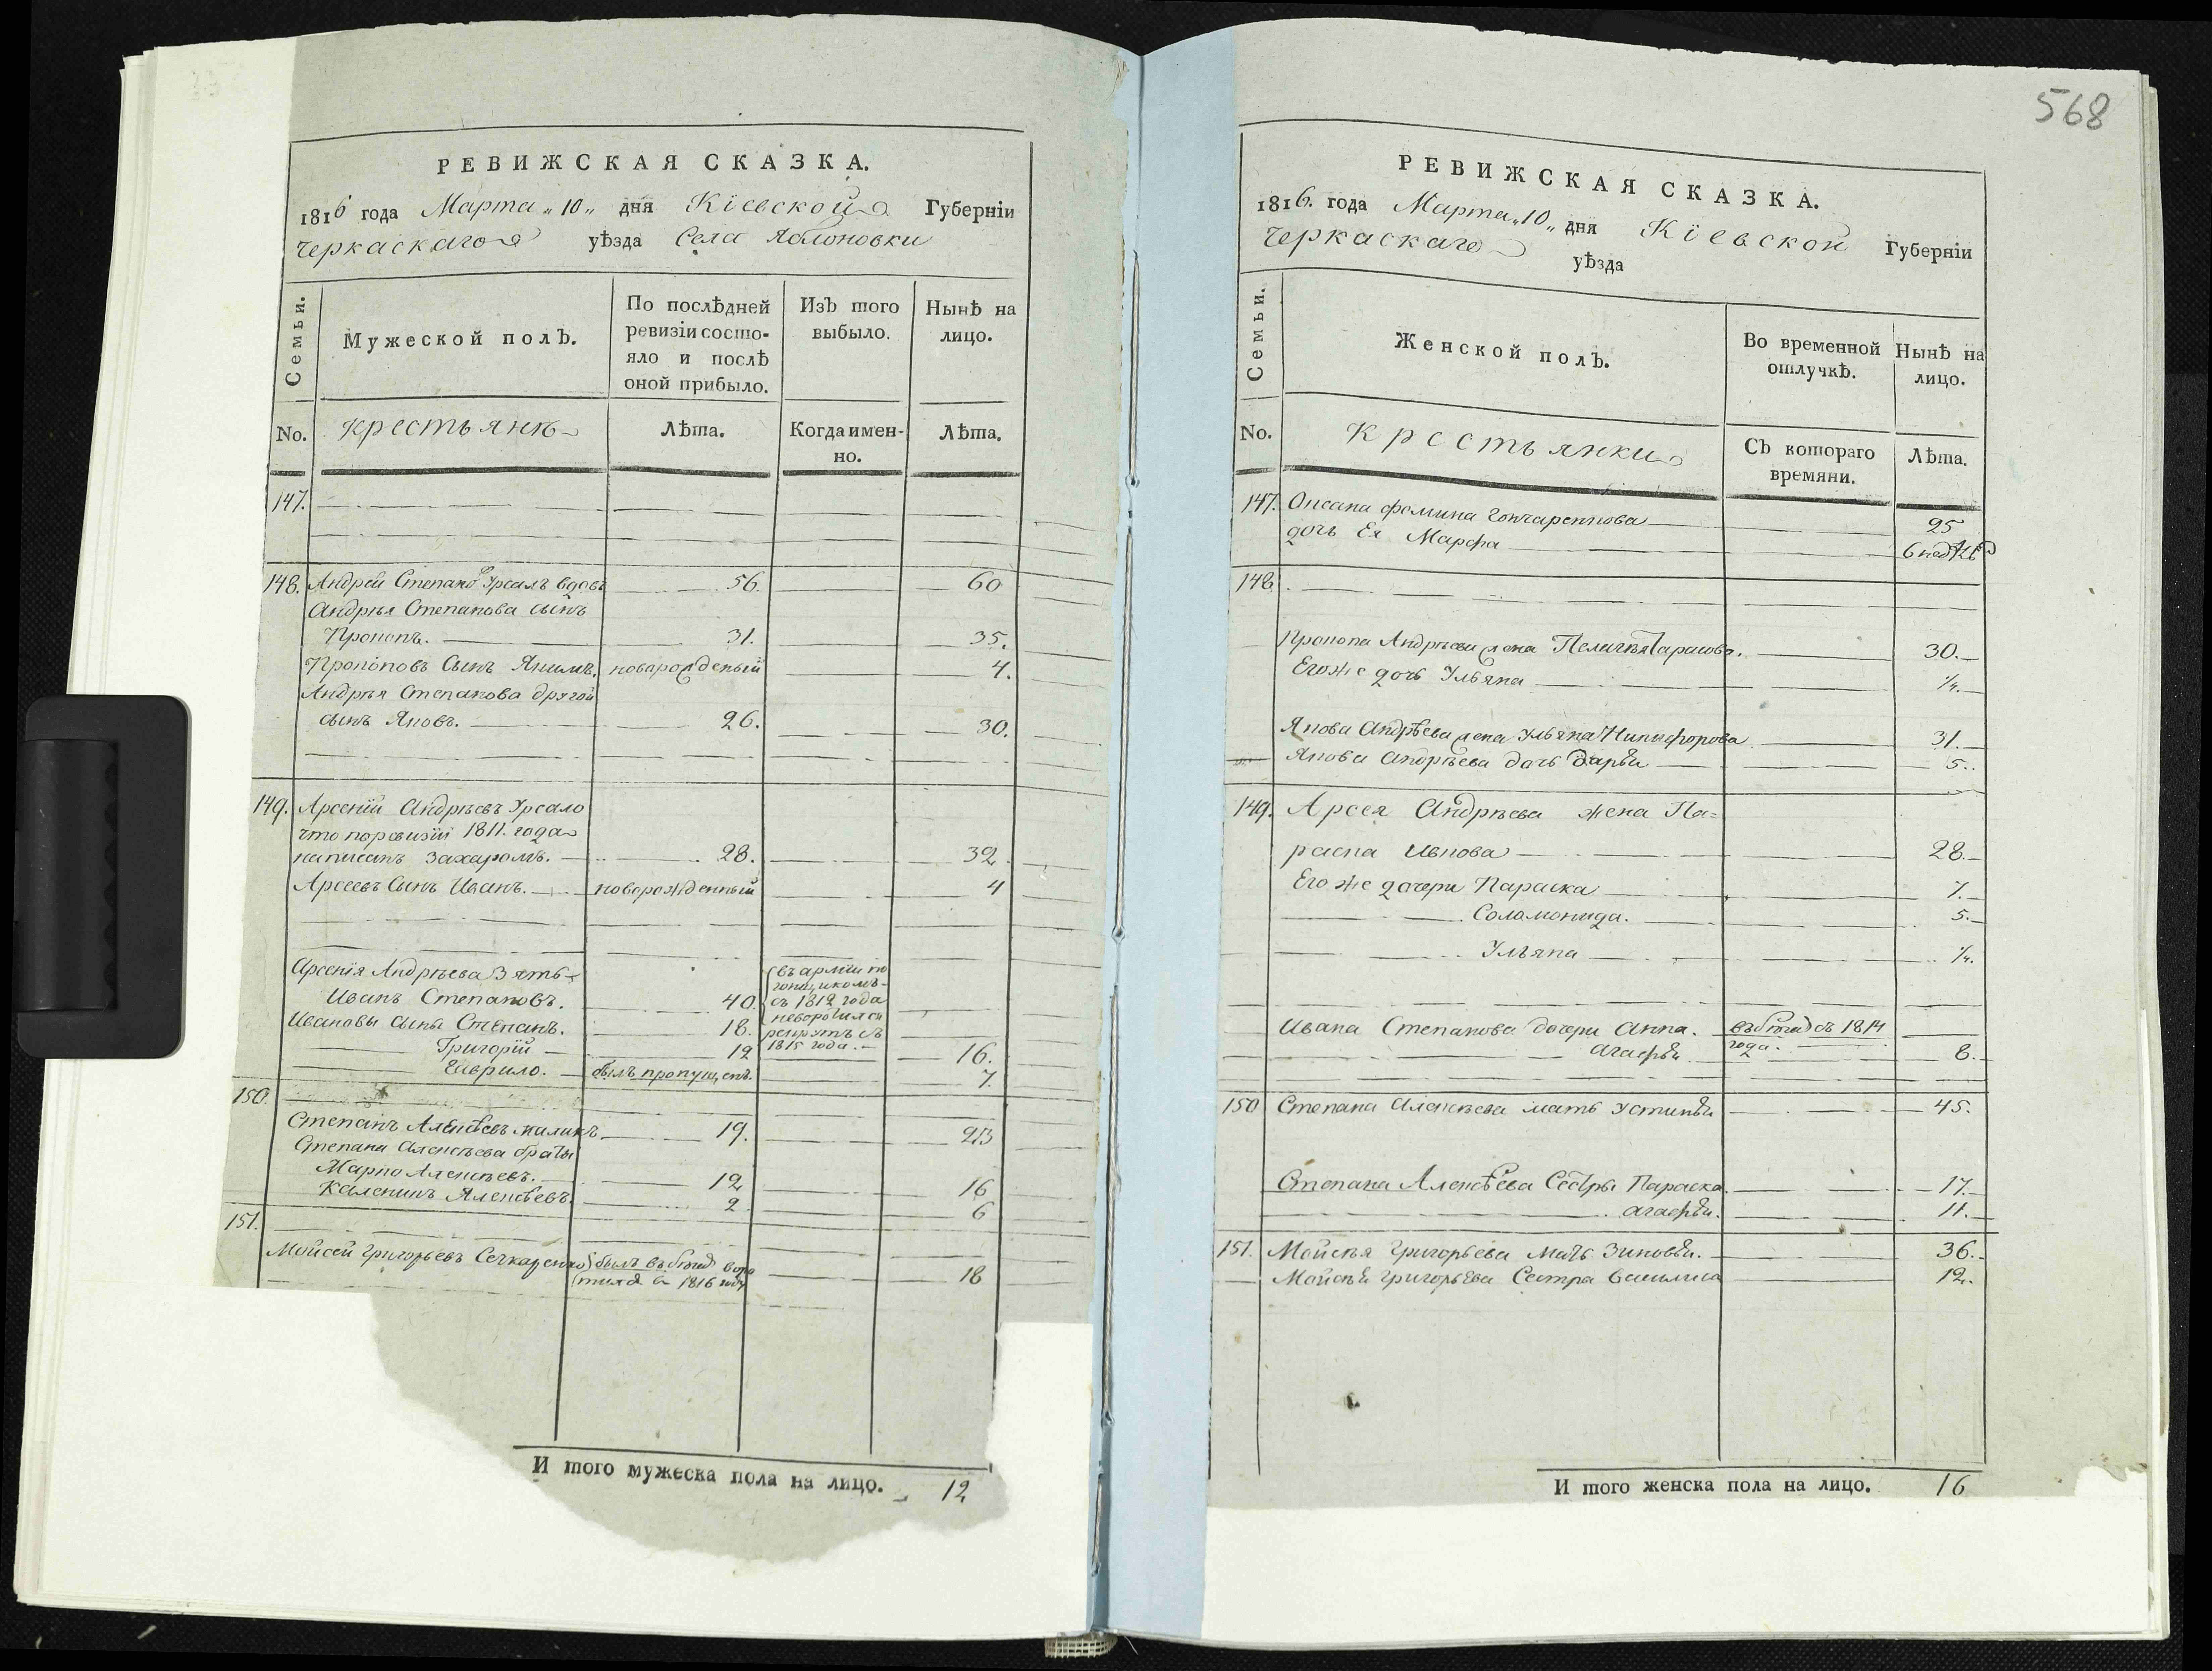 568
РЕВИЖСКАЯ СКАЗКА.
1816 года Марта „10„ дня Кіевской Губерніи
Черкаскаго уѣзда Села Яблоновки
Семьи.
Мужеской полъ.
По послѣдней ревизіи состо-
яло и послѣ
оной прибыло.
Изъ того
выбыло.
Нынѣ на
лицо.
No.
крестьянѣ
Лѣта.
Когда имен-
но.
Лѣта.
147.
148. Андрей Степано Урсалъ вдовъ 56. 60
Андрѣя Степанова сынъ
Прокопъ. 31. 35.
Прокоповъ Сынъ Якимъ. новарожденый 4.
Андрѣя Степанова другой
сынъ Яковъ. 26. 30.
149. Арсеній Андрѣевъ Урсало
что поревизіи 1811. года
написанъ Захаромъ. 28. 32.
Арсеевъ Сынъ Иванъ. новорожденный 4
Арсенія Андрѣева Зять
Иванъ Степановъ. 40. въ арміи по
гонщикомъ
съ 1812 года
неворотился
Ивановы сыны Степанъ. 18. рекрутъ съ
1815 года.
Григорій 12 16.
Гаврило. былъ пропущенъ. 7.
150.
Степанъ Алексѣевъ 19. 23
Степана Алексѣева браты
Марко Алексѣевъ. 12 16
Каленикъ Алексѣевъ 2 6
151.
Мойсей Григорьевъ Сечкаренко былъ въ бѣгах воро
тился в 1816 году 18
И того мужеска пола на лицо. 12
РЕВИЖСКАЯ СКАЗКА.
1816. года Марта „10„ дня Кіевской Губерніи
Черкаскаго уѣзда
Семьи.
Женской полъ.
Во временной
отлучкѣ.
Нынѣ на
лицо.
No.
Крестьянки
Съ котораго
времяни.
Лѣта.
147. Оксана Фомина Гончаренкова 25
дочь Ея Марфа 6 недѣл
148.
Прокопа Андрѣева жена Пелагѣя Тарасова. 30.
Егоже дочь Ульяна ¼.
Якова Андрѣева жена Ульяна Никифорова 31.
Якова Андрѣева дочь Дарья 5.
149. Арсея Андрѣева жена Па=
раска 28.
Его же дочери Параска 7.
Соломонида. 5.
Ульяна ¼.
Ивана Степанова дочери Анна. въ бѣгах съ 1814
года.
Агафья 8.
150 Степана Алексѣева мать Устинья 45.
Степана Алексѣева Сестры Параска. 17.
Агафья. 11.
151. Мойсѣя Григорьева Мать Зиновья. 36.
Мойсѣя Григорьева Сестра Василиса 12.
И того женска пола на лицо. 16